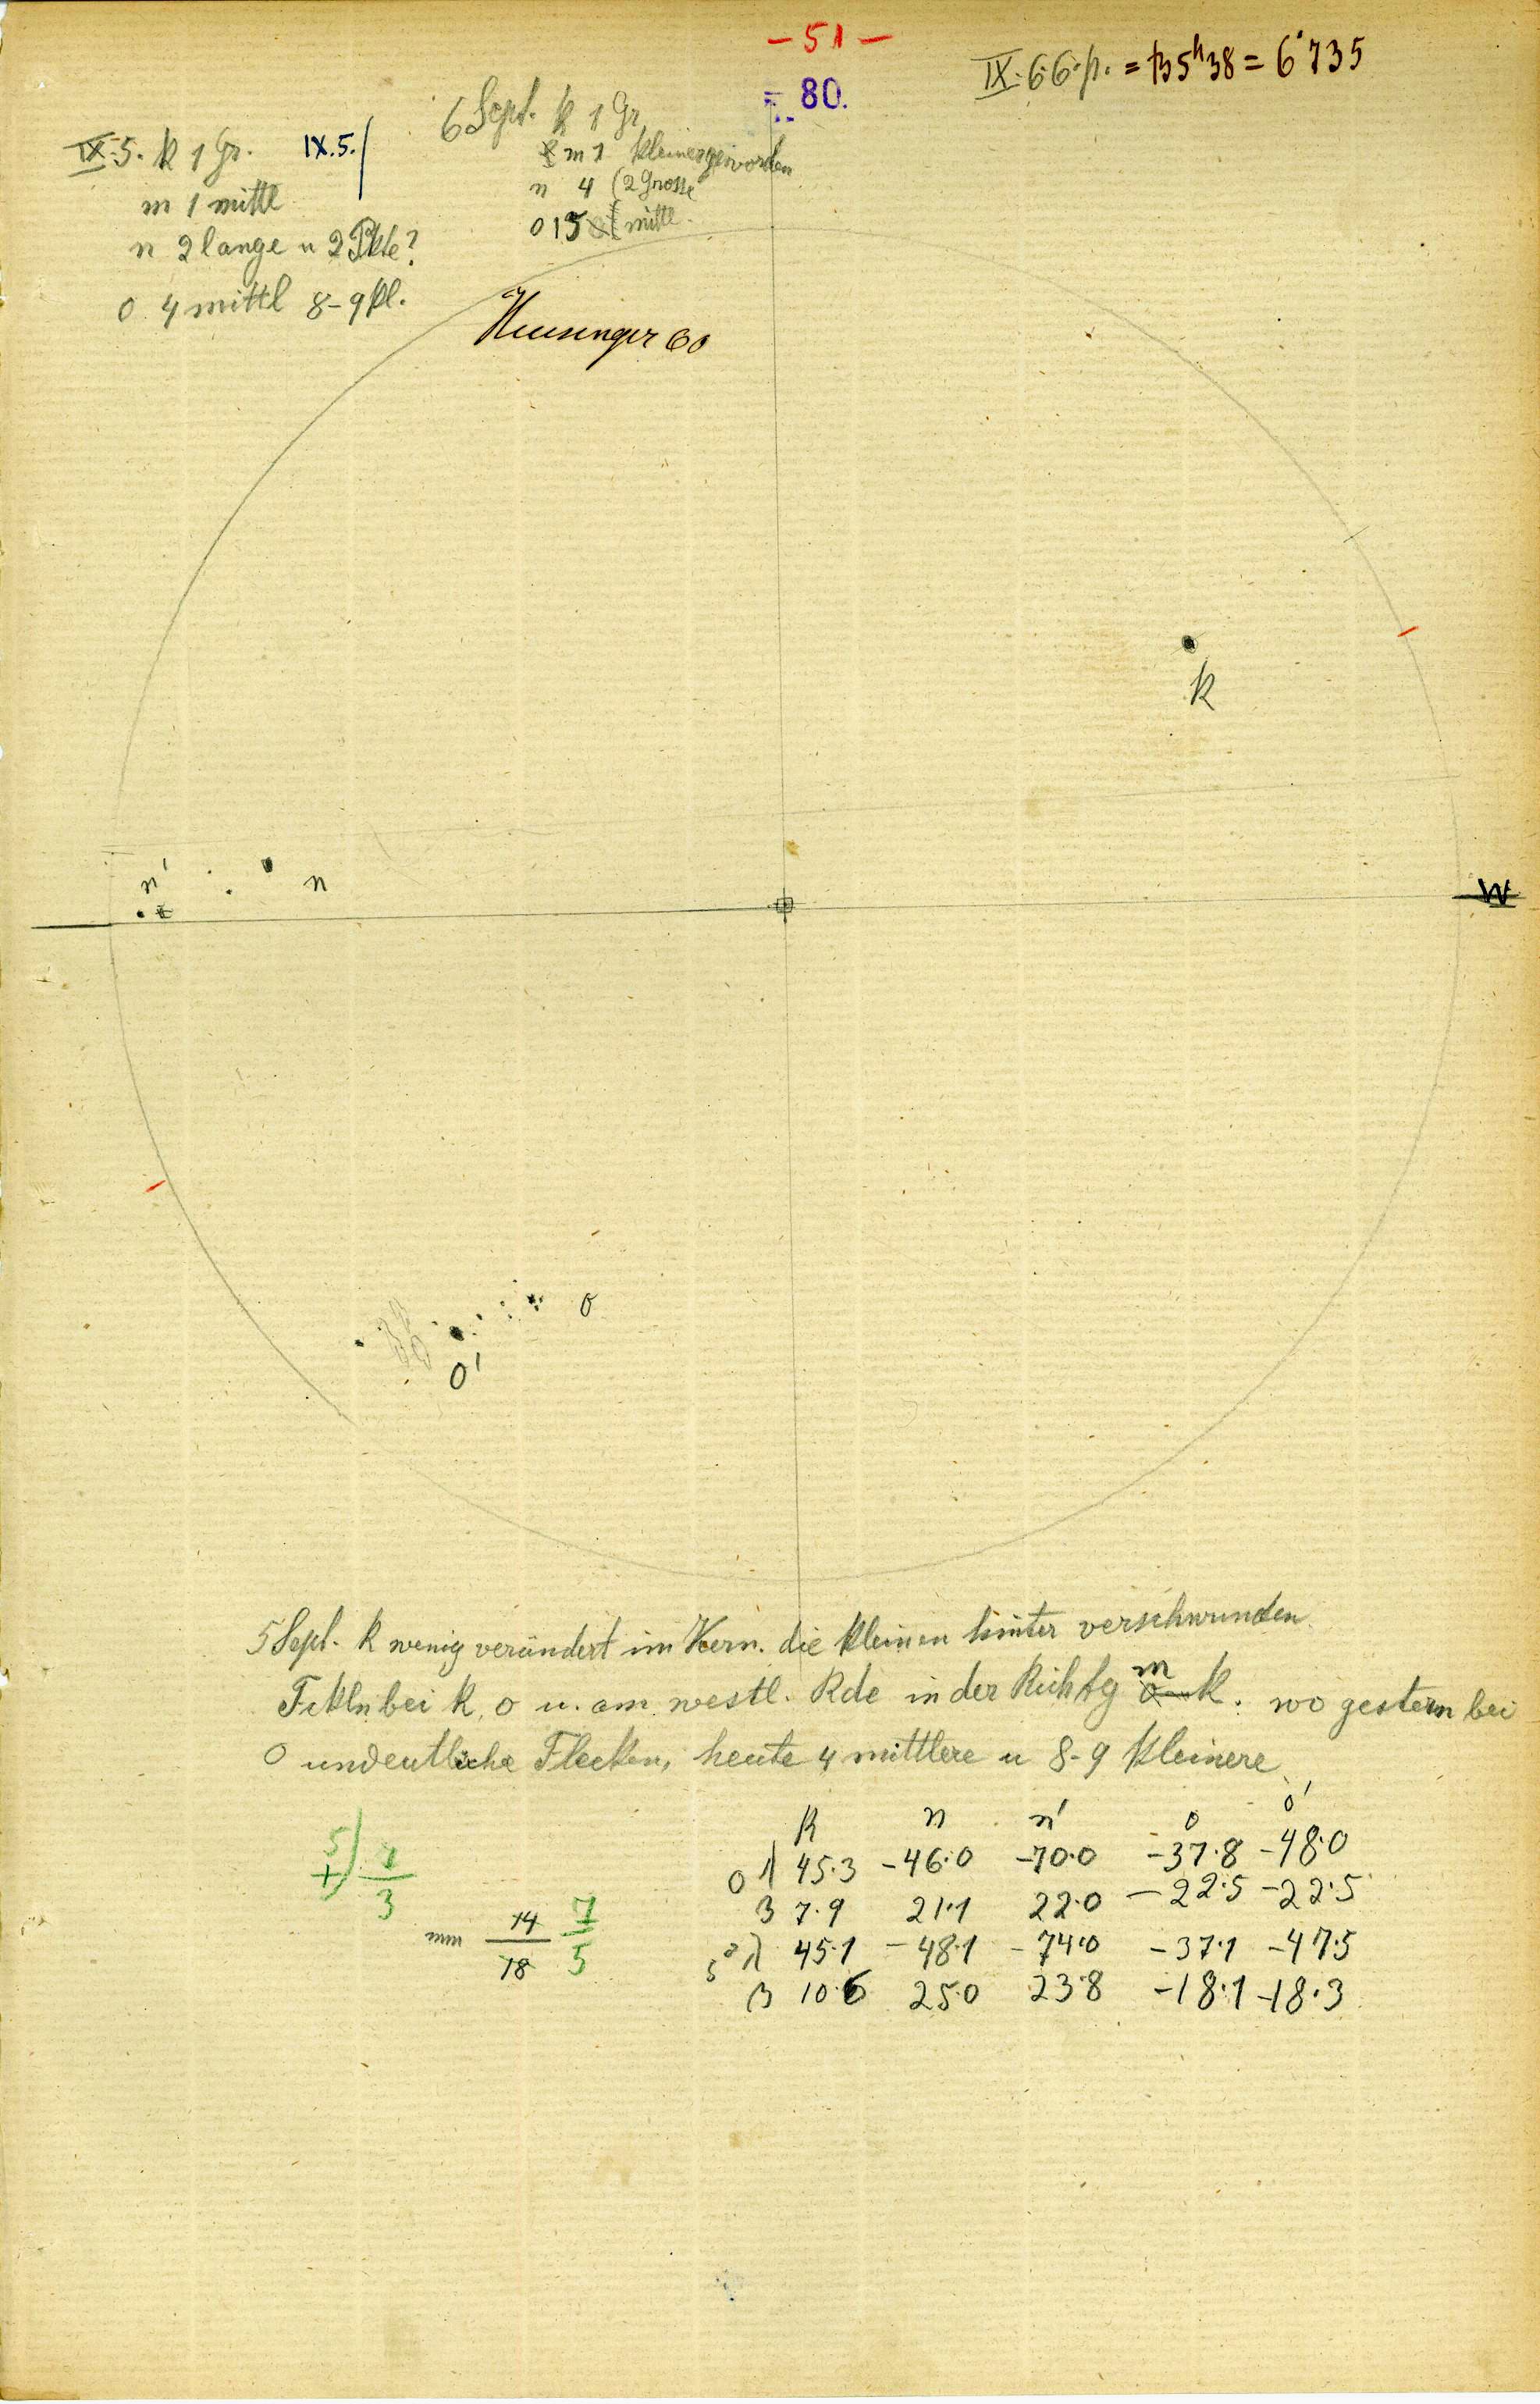 – 51 –
= 80.
IX. 6. 6. p. = 5h38 = 6·735
IX. 5. k 1 Gr. IX.5.
m 1 mittl
n 2 lange u 2 Pkte?
o 4 mittl 8-9 kl.
6 Sept. k 1 Gr.
m 1 kleiner geworden
n 4 (2 Grosse
o 15 mittl.
60
k
n'
n
W
o
o'
5 Sept. k wenig verändert im Kern. die kleinen hinter verschwunden
Fckln bei k, o u. am westl. Rde in der Richtg m k. wo gestern bei
o undeutliche Flecken, heute 4 mittlere u 8-9 kleinere
k n n' o o'
0 λ 45.3 -46.0 -70.0 -37.8 -48.0
β 7.9 21.1 22.0 -22.5 -22.5
λ 45.1 -48.1 -74.0 -37.1 -47.5
β 10.6 25.0 23.8 -18.1 -18.3
5
+
3
mm 14 7
18 5